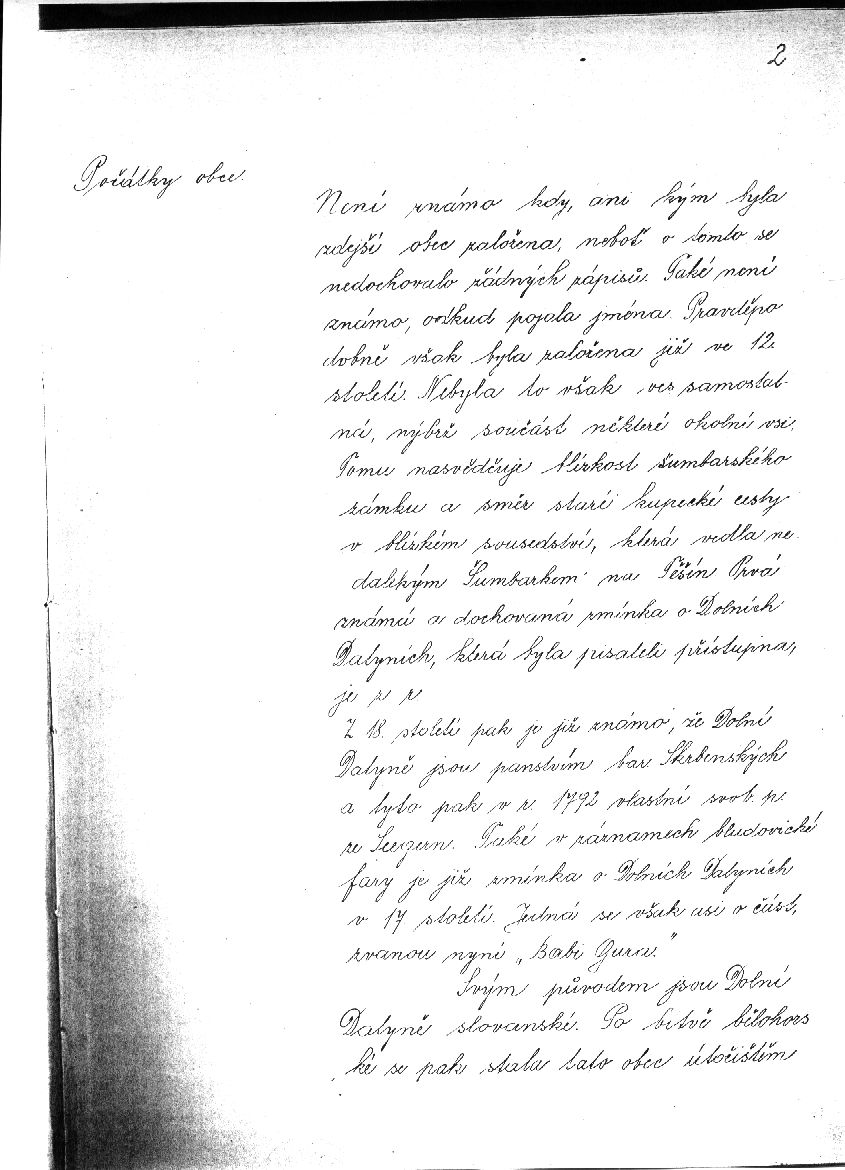 2
Počátky obce.
Není známo kdy, ani kým byla
zdejší obec založena, neboť o tomto se
nedochovalo žádných zápisů. Také není
známo, odkud pojala jména. Pravděpo
dobně však byla založena již ve 12.
století. Nebyla to však ves samostat-
ná, nýbrž součást některé okolní vsi.
Tomu nasvědčuje blízkost šumbarského
zámku a směr staré kupecké cesty
v blízkém sousedství, která vedla ne
dalekým Šumbarkem na Těšín Prvá
známá a dochovaná zmínka o Dolních
Datyních, která byla pisateli přístupina,
je z r
Z 18. století pak je již známo, že Dolní
Datyně jsou panstvím bar Skrbenských
a tyto pak v r. 1792 vlastní svob. p.
ze Seegern. Také v záznamech bludovické
fary je již zmínka o Dolních Datyních
v 17 století. Jedná se však asi o část,
zvanou nyní „Babi Gura."
Svým původem jsou Dolní
Datyně slovanské. Po bitvě bělohors
ké se pak stala tato obec útočištěm